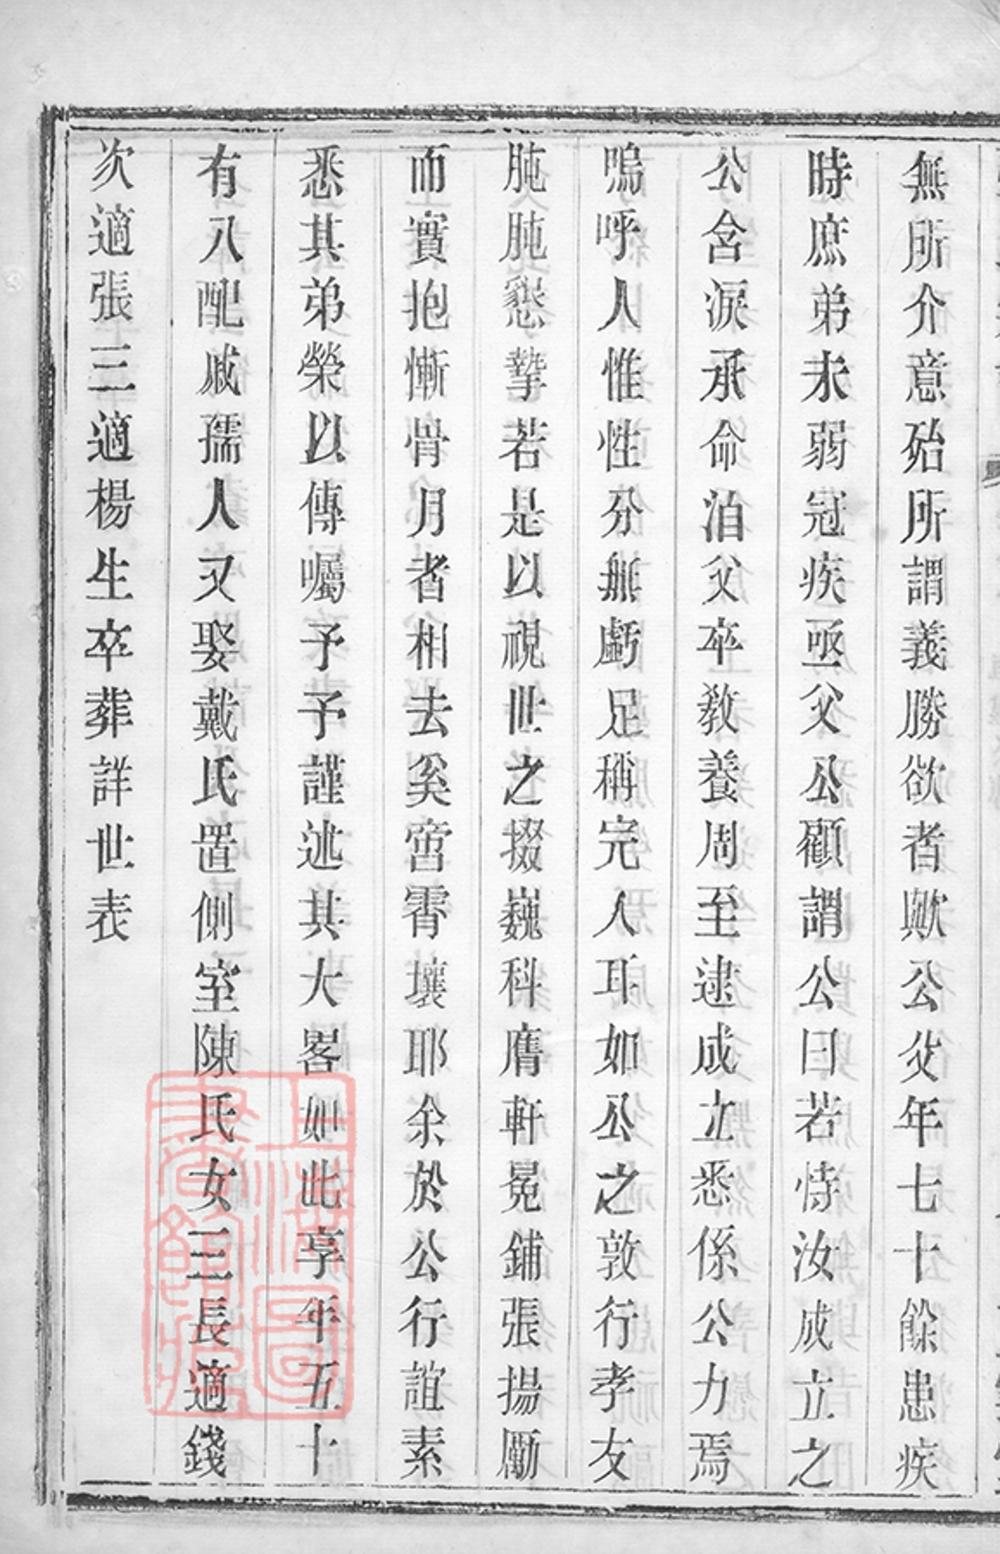 無所介意殆所謂義勝欲者歟公父年七十餘患疾
時庶弟未弱冠疾亟父公顧謂公曰若恃汝成立之
公含淚承命洎父卒教養周至逮成立悉係公力焉
嗚呼人惟性分無虧足稱完人耳如公之敦行孝友
肫肫懇摯若是以視世之掇巍科膺軒冕鋪張揚厲
而實抱慚骨月者相去奚啻霄壤耶余於公行誼素
悉其弟榮以傳囑予予謹述其大畧如此享年五十
有八配戚孺人又娶戴氏置側室陳氏女三長適錢
次適張三適楊生卒葬詳世表
上海圖書館藏